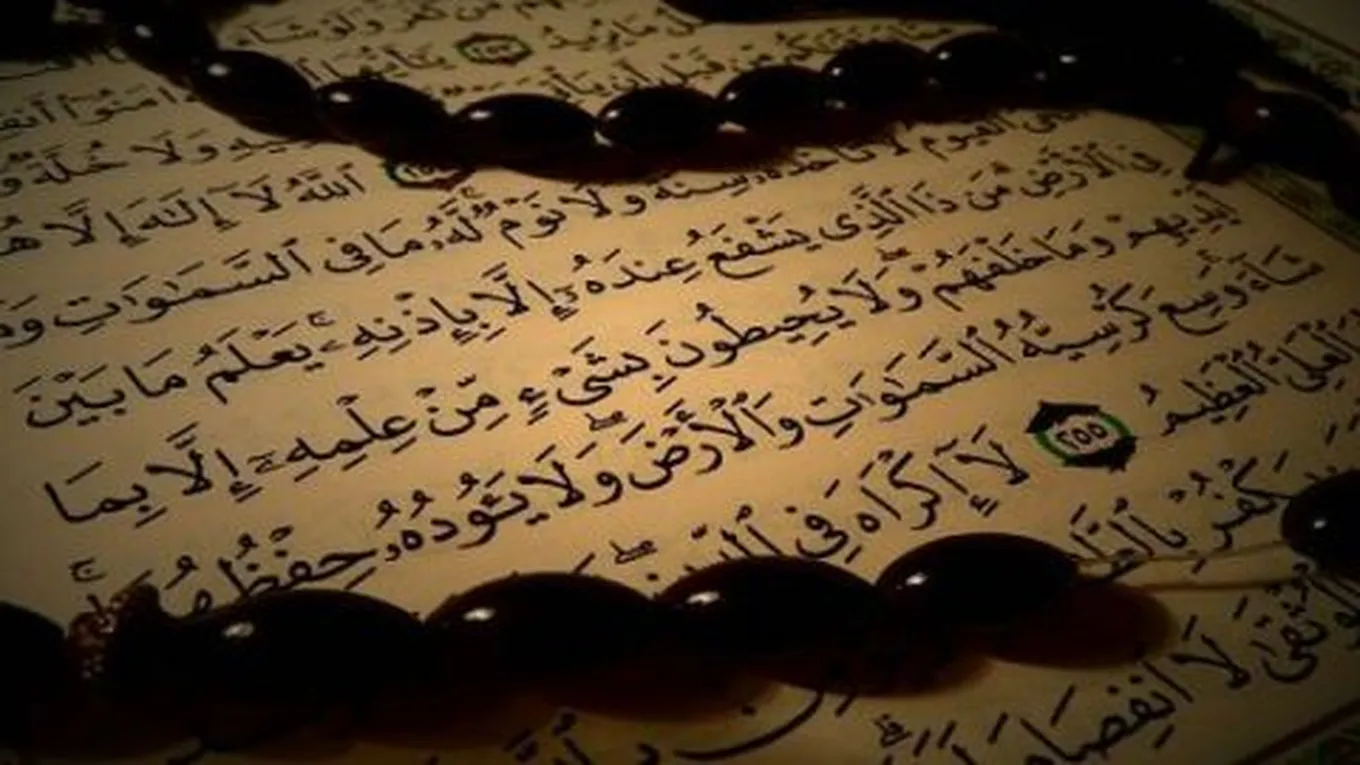 مِّن كَفَرَ وَلَوْ شَآءَ
مَا يُرِيدُ ٢٥٣ يَٰٓأَيُّهَا ءَامَنُوٓا۟
مِّن قَبْلِ أَن وَلَا خُلَّةٌ
٢٥٤ ٱللَّهُ لَآ إِلَٰهَ إِلَّا
ٱلْقَيُّومُ لَا تَأْخُذُهُۥ سِنَةٌ وَلَا نَوْمٌ لَّهُۥ مَا فِى ٱلسَّمَٰوَٰتِ
فِى ٱلْأَرْضِ مَن ذَا ٱلَّذِى يَشْفَعُ عِندَهُۥٓ إِلَّا بِإِذْنِهِۦ يَعْلَمُ مَا بَيْنَ
أَيْدِيهِمْ وَمَا خَلْفَهُمْ وَلَا يُحِيطُونَ بِشَىْءٍ مِّنْ عِلْمِهِۦٓ إِلَّا بِمَا
شَآءَ وَسِعَ كُرْسِيُّهُ ٱلسَّمَٰوَٰتِ وَٱلْأَرْضَ وَلَا يَـُٔودُهُۥ حِفْظُهُمَا
ٱلْعَلِىُّ ٱلْعَظِيمُ ٢٥٥ لَآ إِكْرَاهَ فِى
يَكْفُرْ
لَا ٱنفِصَامَ